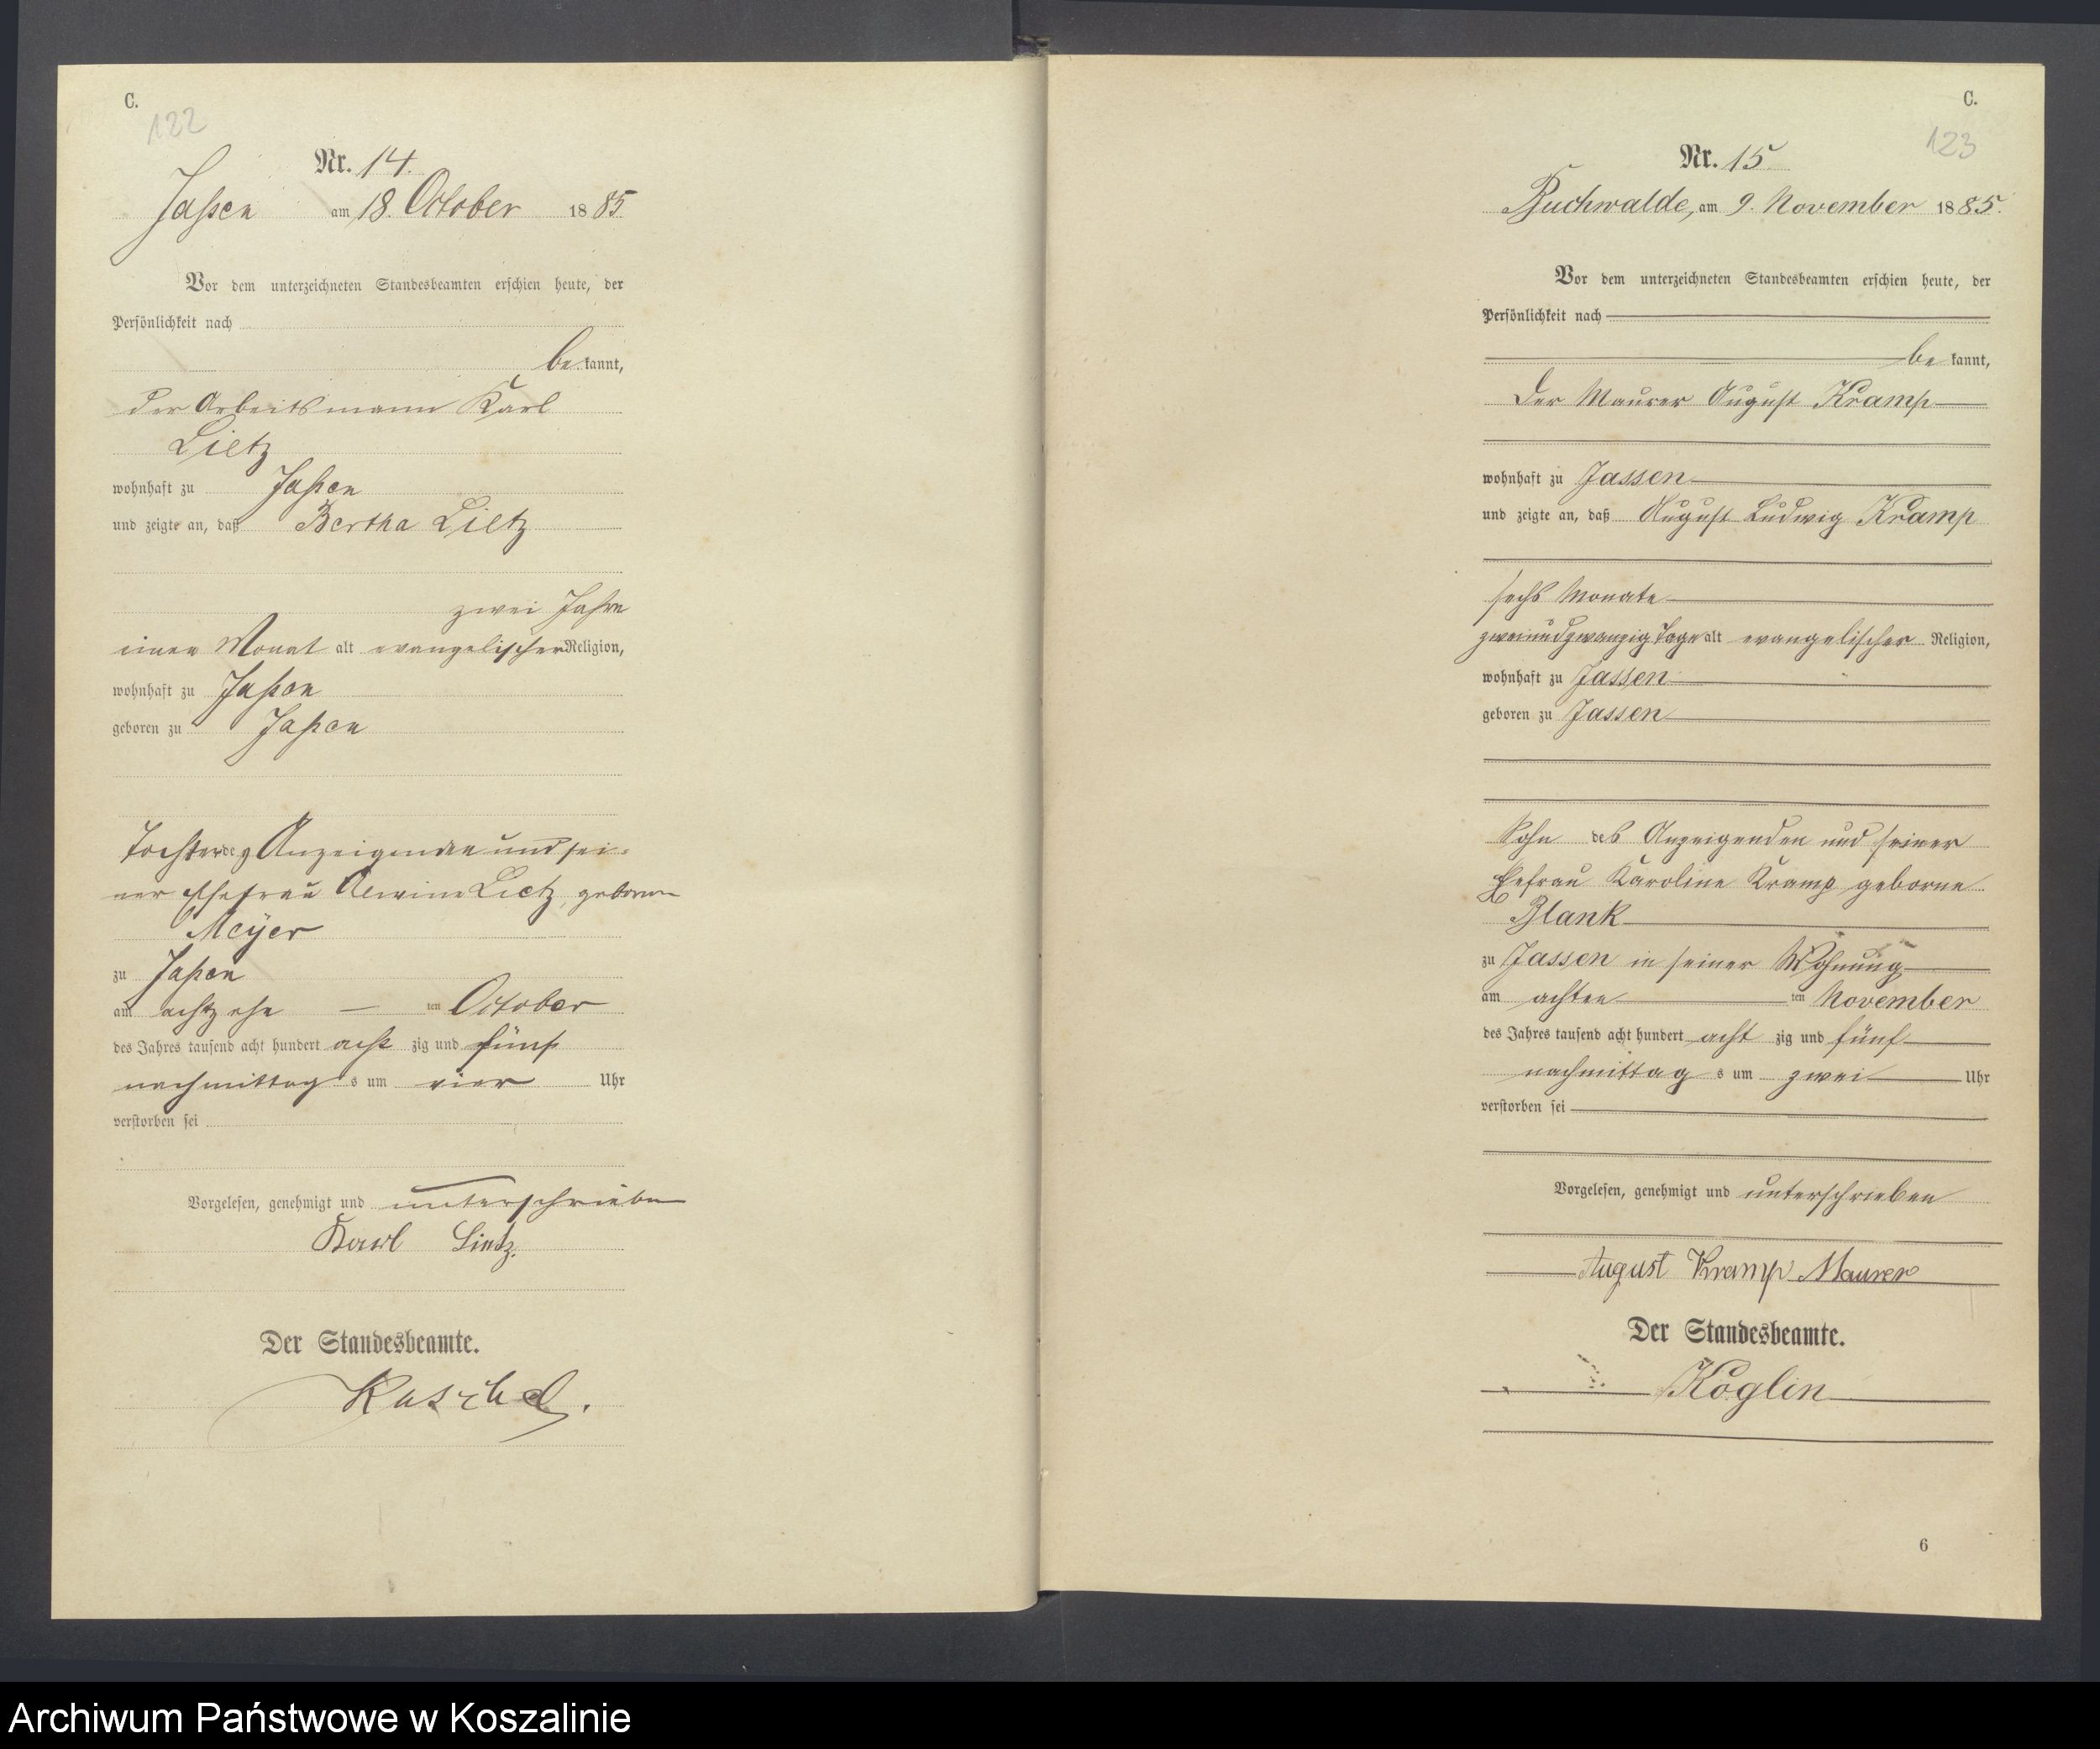 C.
122
Nr. 14.
Jassen am 18. October 1885
Vor dem unterzeichneten Standesbeamten erschien heute, der
Persönlichkeit nach
bekannt,
der Arbeitsmann Karl
Lietz
wohnhaft zu Jassen
und zeigte an, daß Bertha Lietz
zwei Jahre
einen Monat alt evangelischer Religion,
wohnhaft zu Jassen
geboren zu Jassen
Tochter des Anzeigenden und sei-
ner Ehefrau Alwine Lietz, geborene
Meÿer
zu Jassen
am achtzehn — ten October
des Jahres tausend acht hundert acht zig und fünf
nachmittag s um vier Uhr
verstorben sei
Vorgelesen, genehmigt und unterschrieben
Karl Lietz.
Der Standesbeamte.
C.
123
Nr. 15
Buchwalde, am 9. November 1885.
Vor dem unterzeichneten Standesbeamten erschien heute, der
Persönlichkeit nach
bekannt,
der Maurer August Kramp
wohnhaft zu Jassen
und zeigte an, daß August Ludwig Kramp
sechs Monate
zweiundzwanzig Tage alt evangelischer Religion,
wohnhaft zu Jassen
geboren zu Jassen
Sohn des Anzeigenden und seiner
Ehefrau Karoline Kramp geborne
Blank
zu Jassen in seiner Wohnung
am achten ten November
des Jahres tausend acht hundert acht zig und fünf
nachmittag s um zwei Uhr
verstorben sei
Vorgelesen, genehmigt und unterschrieben
August Kramp Maurer
Der Standesbeamte.
Köglin
6
Archiwum Państwowe w Koszalinie